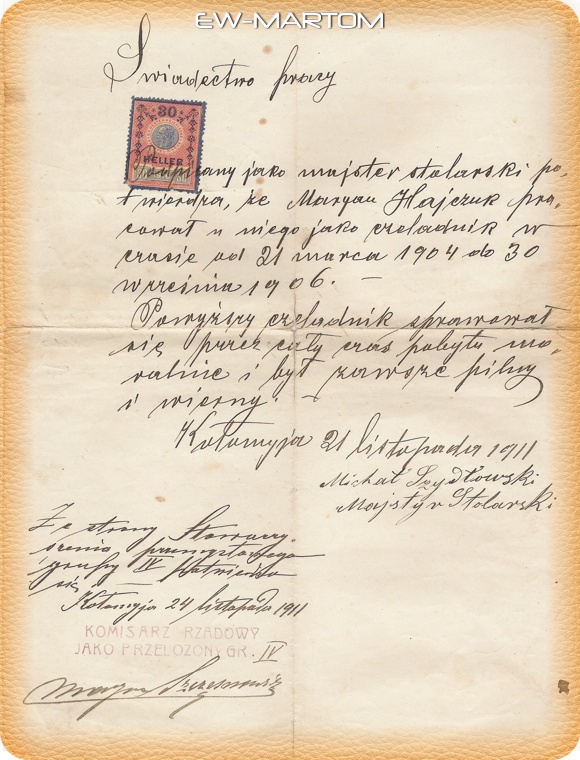 EW-MARTOM
Świadectwo pracy
30
HELLER
Podpisany jako majster stolarski po-
twierdza, że Maryan Hajczuk pra-
cował u niego jako czeladnik w
czasie od 21 marca 1904 do 30
września 1906. —
Powyższy czeladnik sprawował
się przez cały czas pobytu mo-
ralnie i był zawsze pilny
i wierny. —
Kołomyja 21 listopada 1911
Michał Szydłowski
Majstyr Stolarski
Ze strony Stowarzy-
szenia przemysłowego
grupy IV potwierdza
się —
Kołomyja 24 listopada 1911
KOMISARZ RZADOWY
JAKO PRZEŁOZONY GR. IV